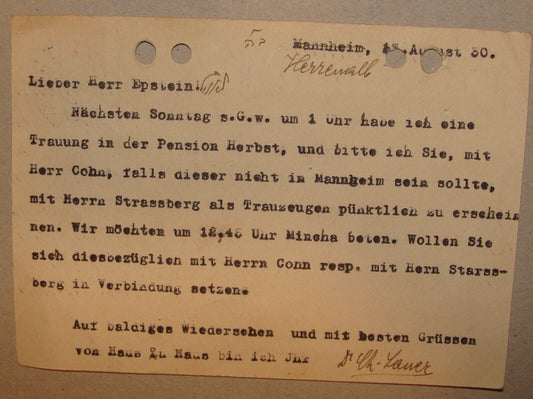 ב"ה
Mannheim, 13. August 30.
Herrenalb
Lieber Herr Epstein!
Nächsten Sonntag s.G.w. um 1 Uhr habe ich eine
Trauung in der Pension Herbst, und bitte ich Sie, mit
Herr Cohn, falls dieser nicht in Mannheim sein sollte,
mit Herrn Strassberg als Trauzeugen pünktlich zu erschein
nen. Wir möchten um 12,45 Uhr Mincha beten. Wollen Sie
sich diesbezüglich mit Herrn Cohn resp. mit Hern Starss-
berg in Verbindung setzen.
Auf baldiges Wiedersehen und mit besten Grüssen
von Haus zu Haus bin ich Jhr Dr Ch. Lauer